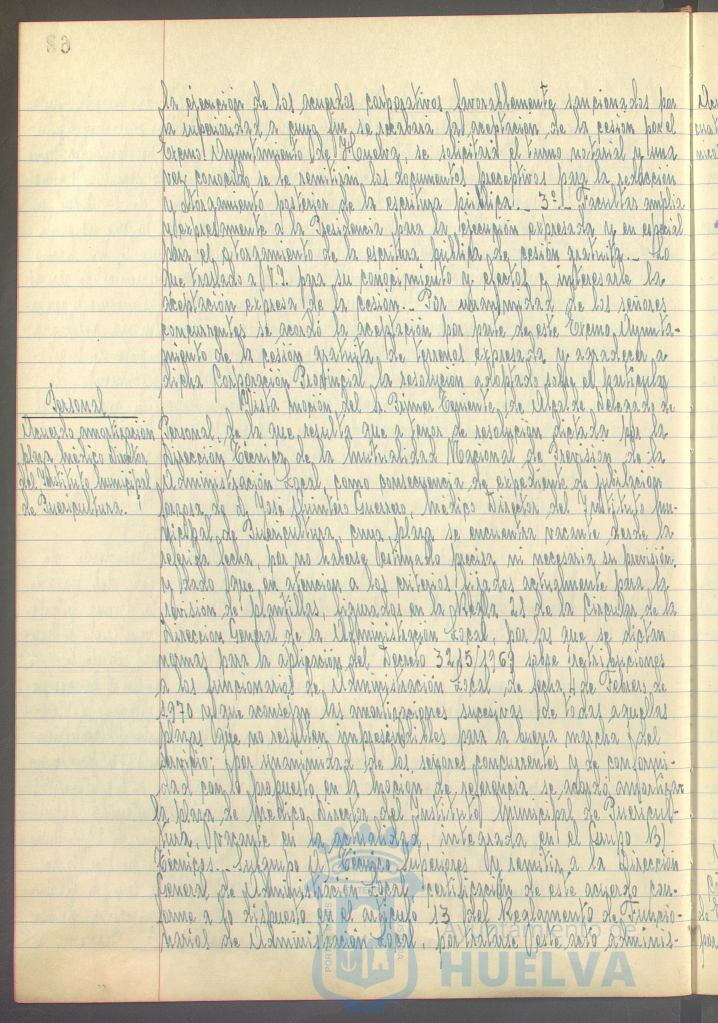 la ejecución de los acuerdos corporativos favorablemente sancionados por
la superioridad a cuyo fin se recabará la aceptación de la cesión por el
Excmo. Ayuntamiento de Huelva, se solicitará el turno notarial y una
vez conocido se le remitirán los documentos preceptivos para la redacción
y otorgamiento posterior de la escritura pública.- 3º.- Facultar amplia
y expresamente a la Presidencia para la ejecución expresada y en especial
para el otorgamiento de la escritura pública de cesión gratuita.- Lo
que traslado a V.I. para su conocimiento y efectos e interesarle la
aceptación expresa de la cesión.- Por unanimidad de los señores
concurrentes se acordó la aceptación por parte de este Excmo. Ayunta-
miento de la cesión gratuita de terrenos expresada y agradecer a
dicha Corporación Provincial la resolución adoptada sobre el particular
Personal
Acuerdo amortización
plaza Médico Director
del Instituto municipal
de Puericultura.
Vista moción del Sr. Primer Teniente de Alcalde Delegado de
Personal, de la que resulta que a tenor de resolución dictada por la
Dirección Técnica de la Mutualidad Nacional de Previsión de la
Administración Local, como consecuencia de expediente de jubilación
forzosa de D. José Quintero Guerrero, Médico Director del Instituto Mu-
nicipal de Puericultura, cuya plaza se encuentra vacante desde la
referida fecha, por no haberse estimado precisa ni necesaria su provisión
y dado que en atención a los criterios fijados actualmente para la
revisión de plantillas figurados en la Regla 21 de la Circular de la
Dirección General de la Administración Local, por las que se dictan
normas para la aplicación del Decreto 3215/1969 sobre retribuciones
a los funcionarios de Administración Local, de fecha 4 de Febrero de
1970 y que aconsejan las amortizaciones sucesivas de todas aquellas
plazas que no resulten imprescindibles para la buena marcha del
servicio; por unanimidad de los señores concurrentes y de conformi-
dad con lo propuesto en la moción de referencia se acordó amortizar
la plaza de Médico Director del Instituto Municipal de Puericul-
tura, vacante en la actualidad, integrada en el Grupo B)
Técnicos.- Subgrupo Técnico Superiores y remitir a la Dirección
General de Administración Local certificación de este acuerdo con-
forme a lo dispuesto en el artículo 13 del Reglamento de Funcio-
narios de Administración Local, por tratarse este acto adminis-
Ayuntamiento de
HUELVA